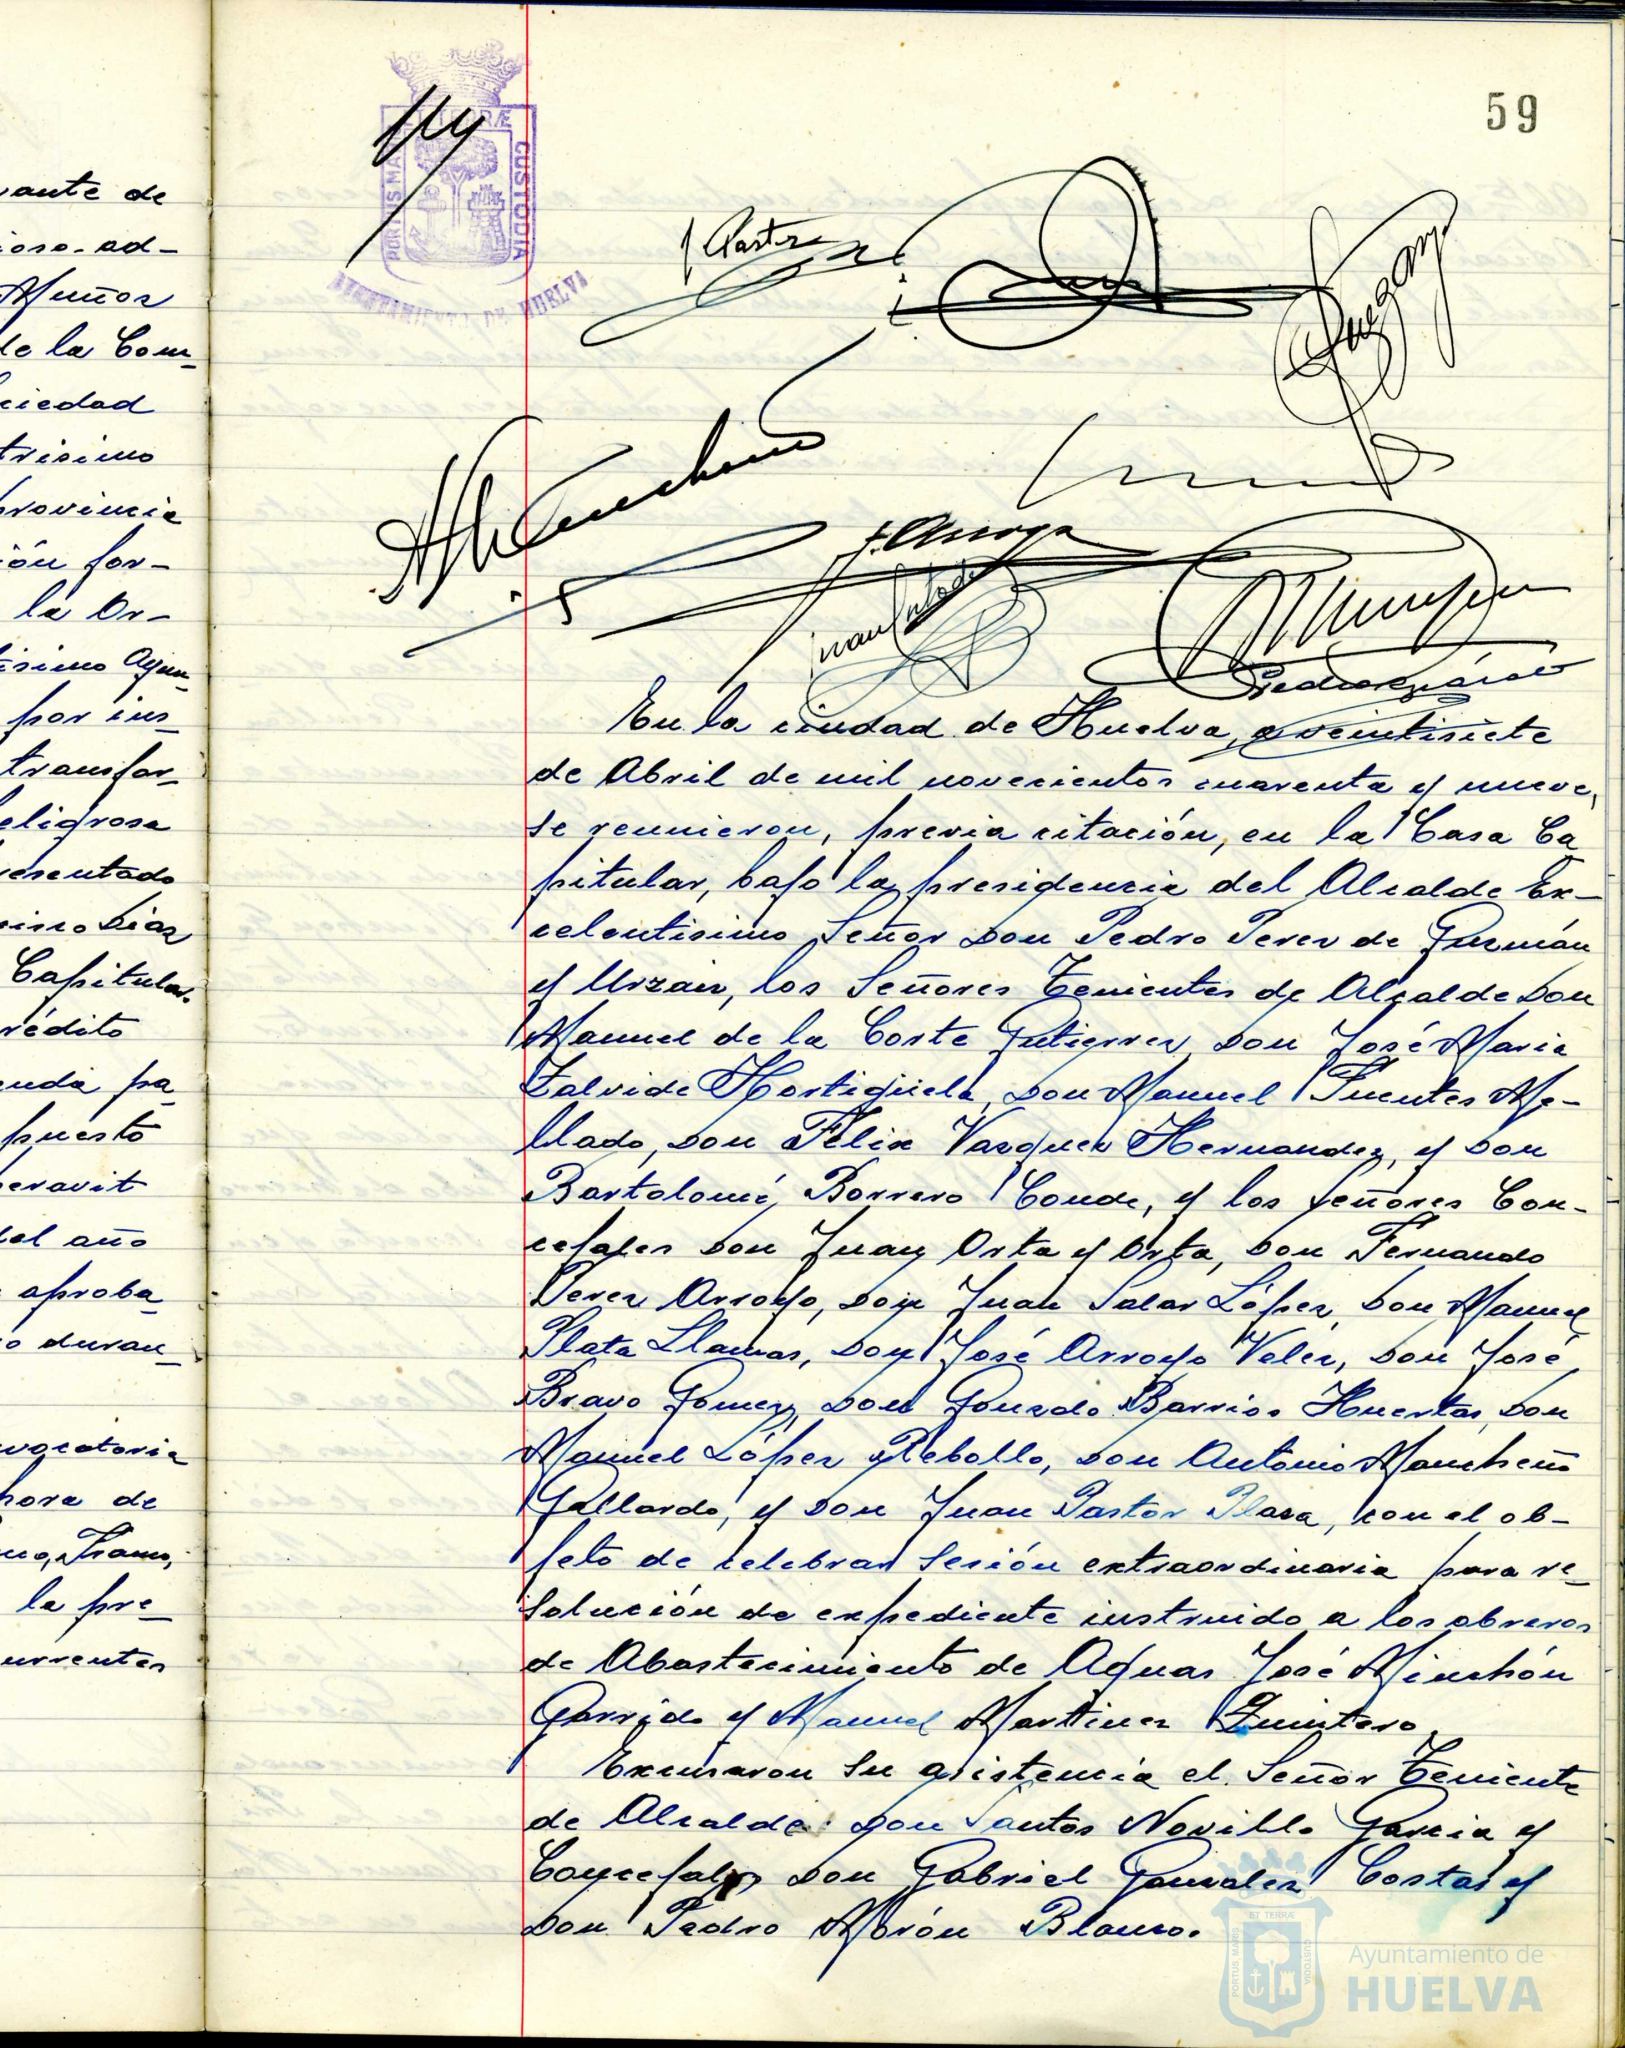 59
PORTUS MARIS ET TERRÆ CUSTODIA
AYUNTAMIENTO DE HUELVA
J. Pastor
J. Arroyo
vante de
ioso-ad-
Muñoz
de la Com-
ciedad
trisimo
provincia
ión for-
la Or-
tisimo Ayun-
por ins-
transfor-
eligrosa
resentado
Diaz
Capitular.
rédito
enda pa-
puesto
eravit
del año
aproba-
o duran-
vocatoria
hora de
la pre-
currentes
En la ciudad de Huelva, a veintisiete
de Abril de mil novecientos cuarenta y nueve,
se reunieron, previa citación, en la Casa Ca
pitular, bajo la presidencia del Alcalde Ex-
celentisimo Señor Don Pedro Perez de Guzmán
y Urzaiz, los Señores Tenientes de Alcalde Don
Manuel de la Corte Gutierrez, Don José Maria
Zalvide Hortigüela, Don Manuel Fuentes Me-
llado, Don Felix Vazquez Hernandez, y Don
Bartolomé Borrero Conde, y los señores Con-
cejales Don Juan Orta y Orta, Don Fernando
Perez Arroyo, Don Juan Salas López, Don Manuel
Plata Llamas, Don José Arroyo Velez, Don José
Bravo Gomez, Don Gonzalo Barrios Huertas, Don
Manuel López Rebollo, Don Antonio Mancheño
Gallardo, y Don Juan Pastor Plaza, con el ob-
jeto de celebrar Sesión extraordinaria para re-
solución de expediente instruido a los obreros
de Abastecimiento de Aguas José Minchón
Garrido y Manuel Martinez Quintero.
Excusaron su asistencia el Señor Teniente
de Alcalde Don Santos Novillo Garcia y
Concejales Don Gabriel Gonzalez Costas y
Don Pedro Morón Blanco.
PORTUS MARIS ET TERRÆ CUSTODIA
Ayuntamiento de
HUELVA